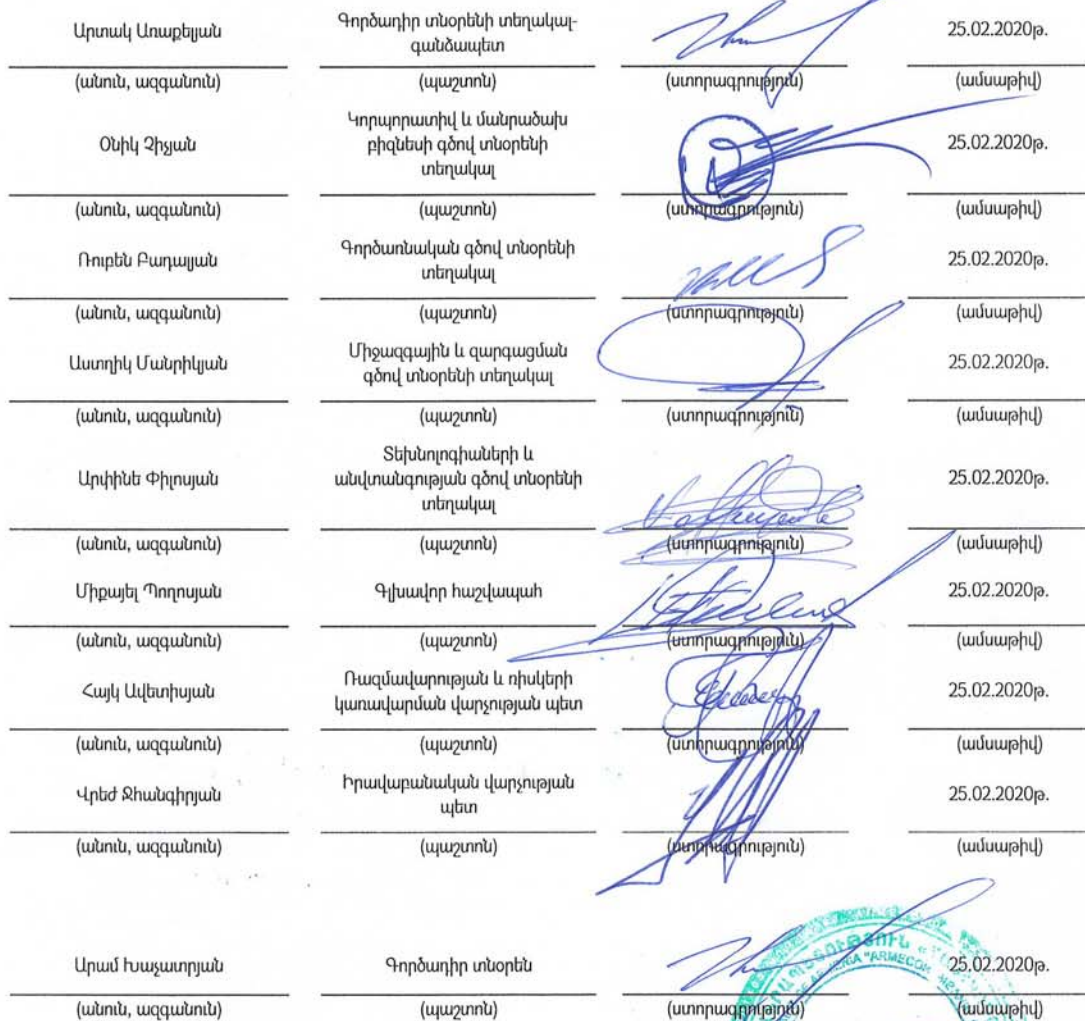 Արտակ Առաքելյան
Գործադիր տնօրենի տեղակալ-
գանձապետ
25.02.2020թ.
(անուն, ազգանուն) (պաշտոն) (ստորագրություն) (ամսաթիվ)
Օնիկ Չիչյան
Կորպորատիվ և մանրածախ
բիզնեսի գծով տնօրենի
տեղակալ
25.02.2020թ.
(անուն, ազգանուն) (պաշտոն) (ստորագրություն) (ամսաթիվ)
Ռուբեն Բադալյան
Գործառնական գծով տնօրենի
տեղակալ
25.02.2020թ.
(անուն, ազգանուն) (պաշտոն) (ստորագրություն) (ամսաթիվ)
Աստղիկ Մանրիկյան
Միջազգային և զարգացման
գծով տնօրենի տեղակալ
25.02.2020թ.
(անուն, ազգանուն) (պաշտոն) (ստորագրություն) (ամսաթիվ)
Արփինե Փիլոսյան
Տեխնոլոգիաների և
անվտանգության գծով տնօրենի
տեղակալ
25.02.2020թ.
(անուն, ազգանուն) (պաշտոն) (ստորագրություն) (ամսաթիվ)
Միքայել Պողոսյան
Գլխավոր հաշվապահ
25.02.2020թ.
(անուն, ազգանուն) (պաշտոն) (ստորագրություն) (ամսաթիվ)
Հայկ Ավետիսյան
Ռազմավարության և ռիսկերի
կառավարման վարչության պետ
25.02.2020թ.
(անուն, ազգանուն) (պաշտոն) (ստորագրություն) (ամսաթիվ)
Վրեժ Ջհանգիրյան
Իրավաբանական վարչության
պետ
25.02.2020թ.
(անուն, ազգանուն) (պաշտոն) (ստորագրություն) (ամսաթիվ)
Արամ Խաչատրյան
Գործադիր տնօրեն
25.02.2020թ.
(անուն, ազգանուն) (պաշտոն) (ստորագրություն) (ամսաթիվ)